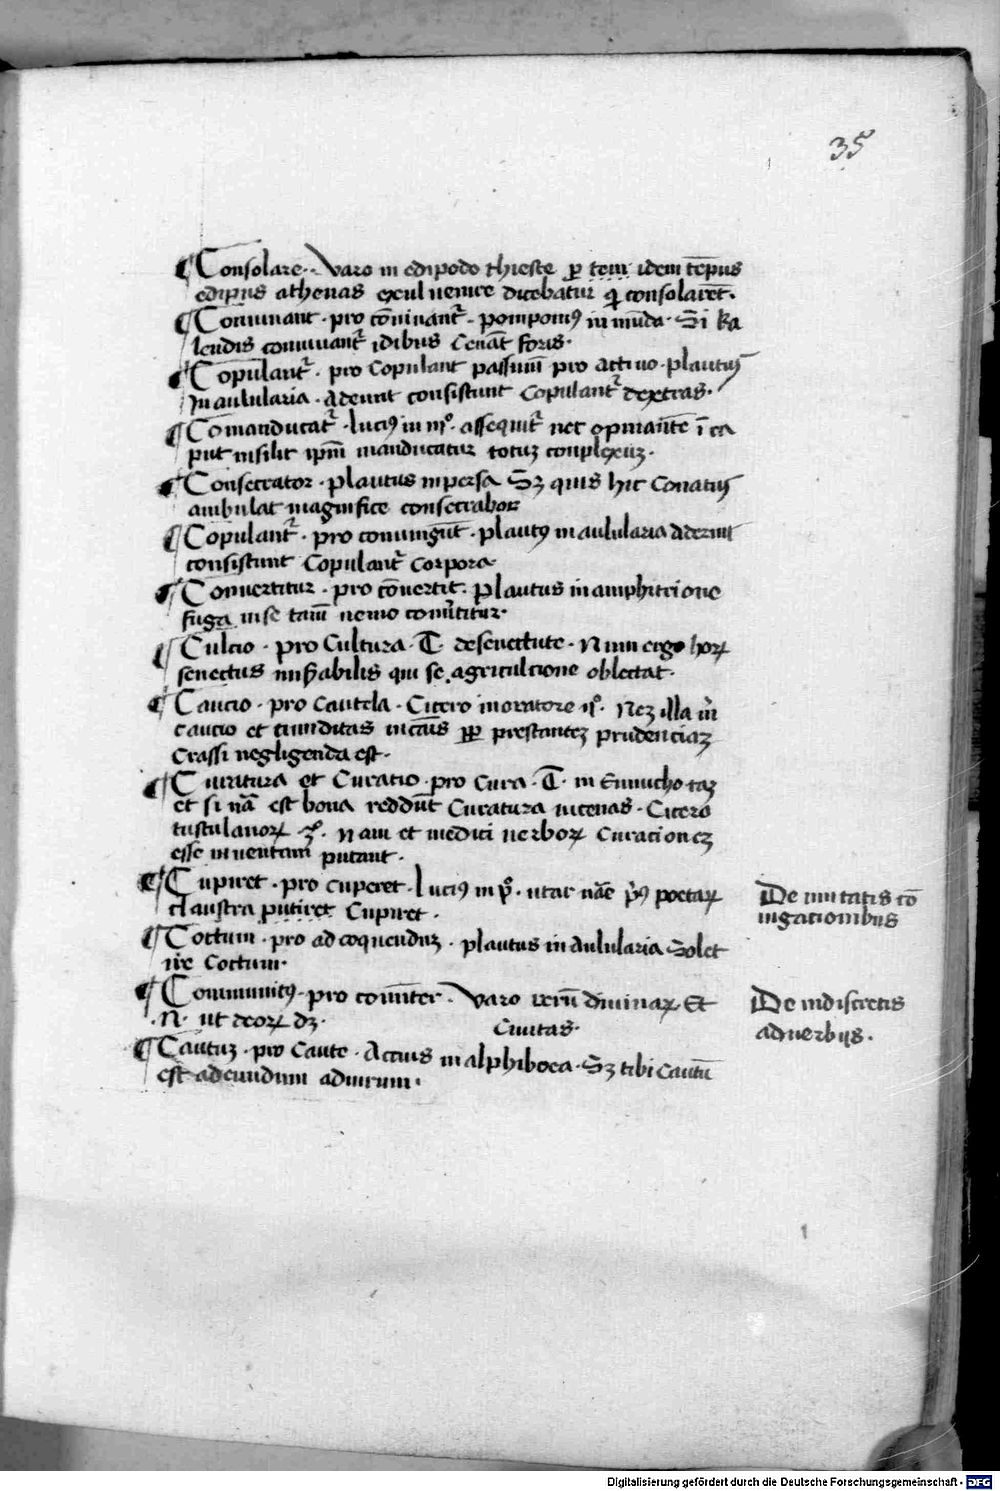 35
¶ Consolare · Varo in edipodo thieste ꝑ tem idem tēpus
edipus athenas exul venire dicebatur qͥ consolaret̄ ·
¶ Coniuuant · pro cōniuant᷑ · pomponiꝰ in mūda · Si ka
lendis conuiuant᷑ idibus Cenāt foris ·
¶ Copulant᷑ · pro Copulant passiuū pro actiuo · plautus
in aulularia · Aderit consistunt Copulant᷑ dextras ·
¶ Comanducat᷑ · luciꝰ in iiiº · assequit᷑ nec opinātē ī ca
put insilit ip̄m manducatur totuʒ conplexuʒ ·
¶ Consecrator · plautus in persa Sʒ quis hic Conatus
ambulat magnifice consecrabor
¶ Copulant᷑ · pro coniungūt · plautꝰ in aulularia Aderint
consistunt Copulant᷑ Corpora
¶ Conuertitur · pro cōuertit · plautus in amphitrione
fuga in se tam̄ nemo conu̾titur ·
¶ Culcio · pro Cultura · T · de senectute · Num ergo horꝝ
senectus mis̾abilis qui se agricultione oblectat ·
¶ Caucio · pro Cautela · Cicero in oratore iiº · Neʒ illa m̄
caucio et timiditas in cāis ꝓꝑ prestanteʒ prudenciaʒ
Crassi negligenda est ·
¶ Curatura et Curatio · pro Cura · T · in Eunucho taʒ
et si nā est bona reddūt Curatura iucenas · Cicero
tusculanorꝝ 3º · Nam et medici uerborꝝ Curacioneʒ
esse inuentam putant ·
¶ Cupiret · pro cuperet · luciꝰ in pº · utar nāe pͥꝰ poetaꝝ
claustra putiret Cupiret ·
¶ Coctum · pro ad coquenduʒ · plautus in Aulularia Solet
ire Coctum ·
¶ Communitꝰ · pro cōmīter · Varo rerū diuinaꝝ · Et
· N · ut deorꝝ dʒ · Ciuitas ·
¶ Cautuʒ · pro Caute · Accius in alphiboea · Sʒ tibi Cautū
est adeundum ad uirum ·
De mutatis cō
iugationibus
De indiscretis
aduerbijs ·
1
Digitalisierung gefördert durch die Deutsche Forschungsgemeinschaft - DFG